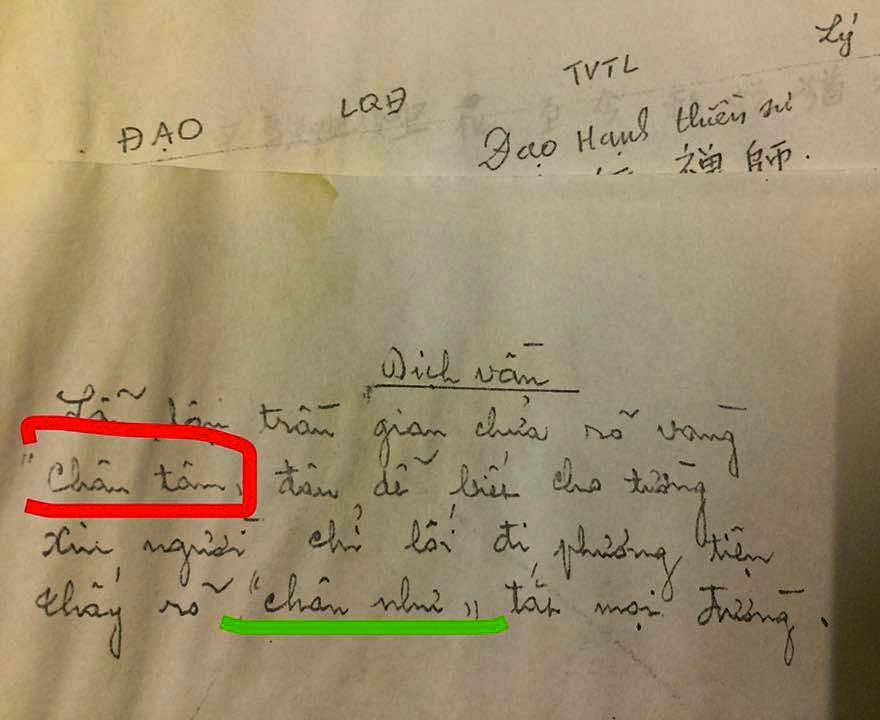 Lý
TVTL
LQĐ
ĐẠO
Đạo Hạnh thiền sư
禅師.
Dịch vần
Lẫn lộn trần gian chửa rõ vàng
"Chân tâm„ đâu dễ biết cho tường
Xin người chỉ lối đi phương tiện
thấy rõ "chân như„ tắt mọi đường.